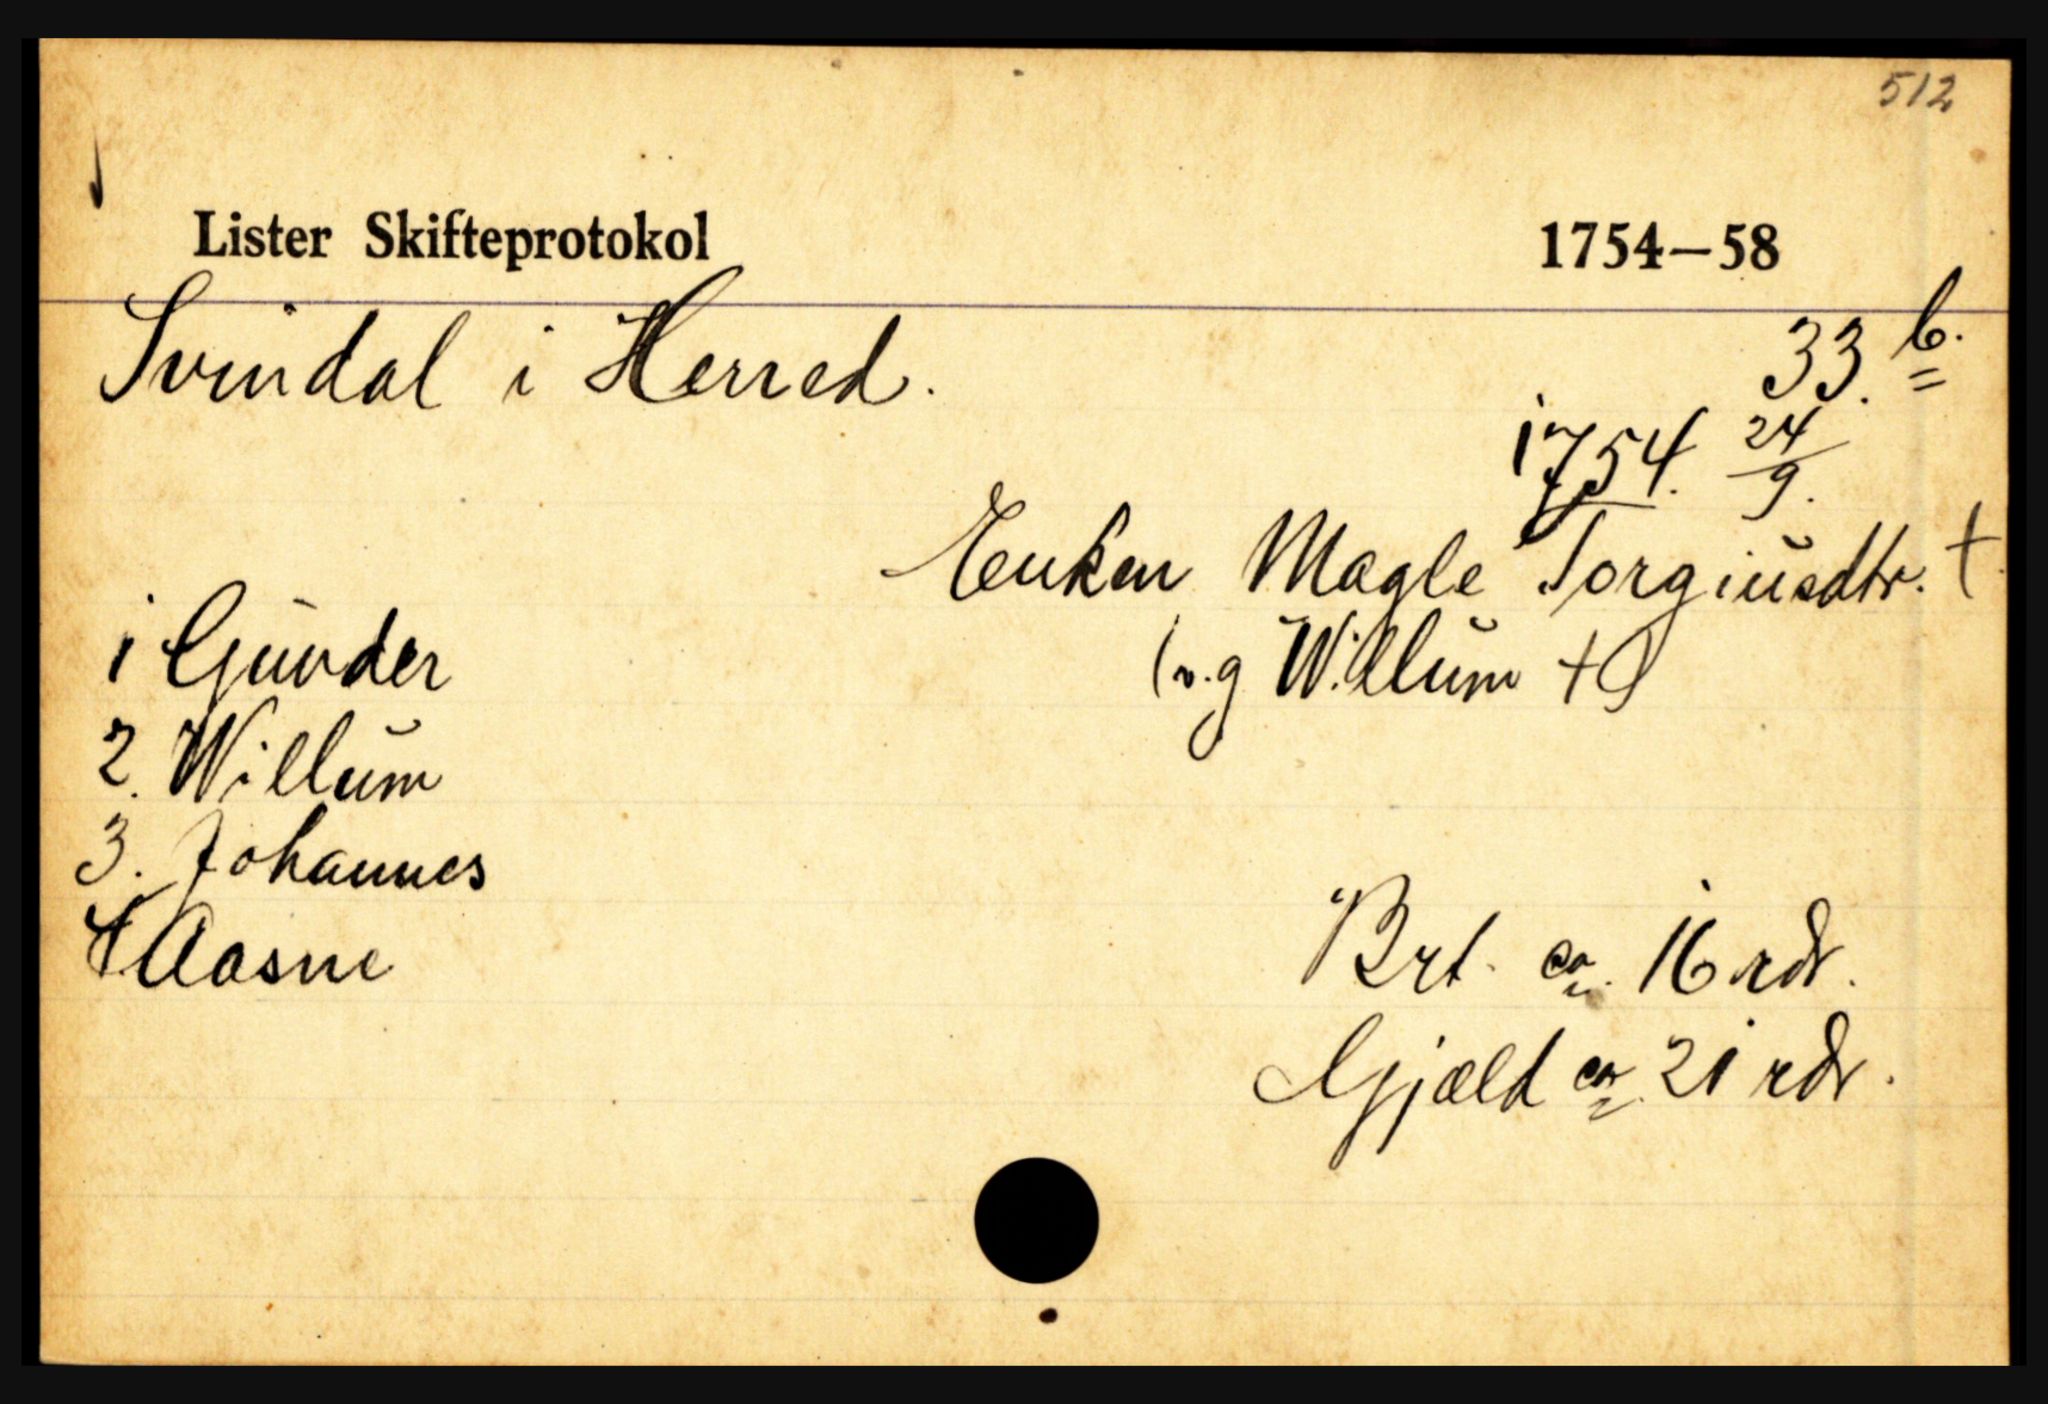 512
Lister Skifteprotokol 1754–58
Svindal i Herred. 33. b.
1754. 24/9.
Enken Magle Torgiusdtr. †.
1 Gunder (v. g Willum †)
2. Willum
3. Johannes
4 Aasne Brt. ca. 16 rdr.
Gjæld ca. 21 rdr.